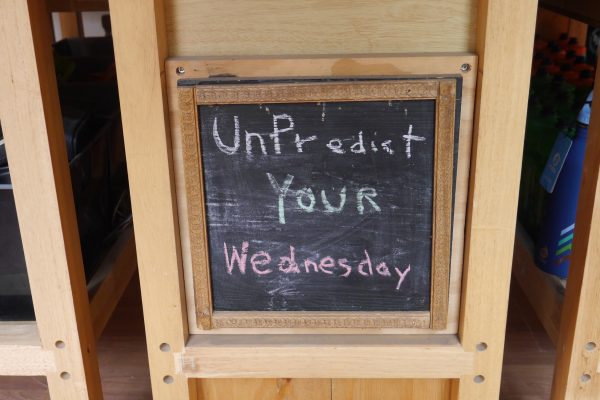 UnPredict
YOUR
Wednesday